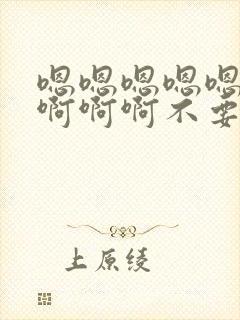 嗯嗯嗯嗯嗯
啊啊啊不要
上原绫